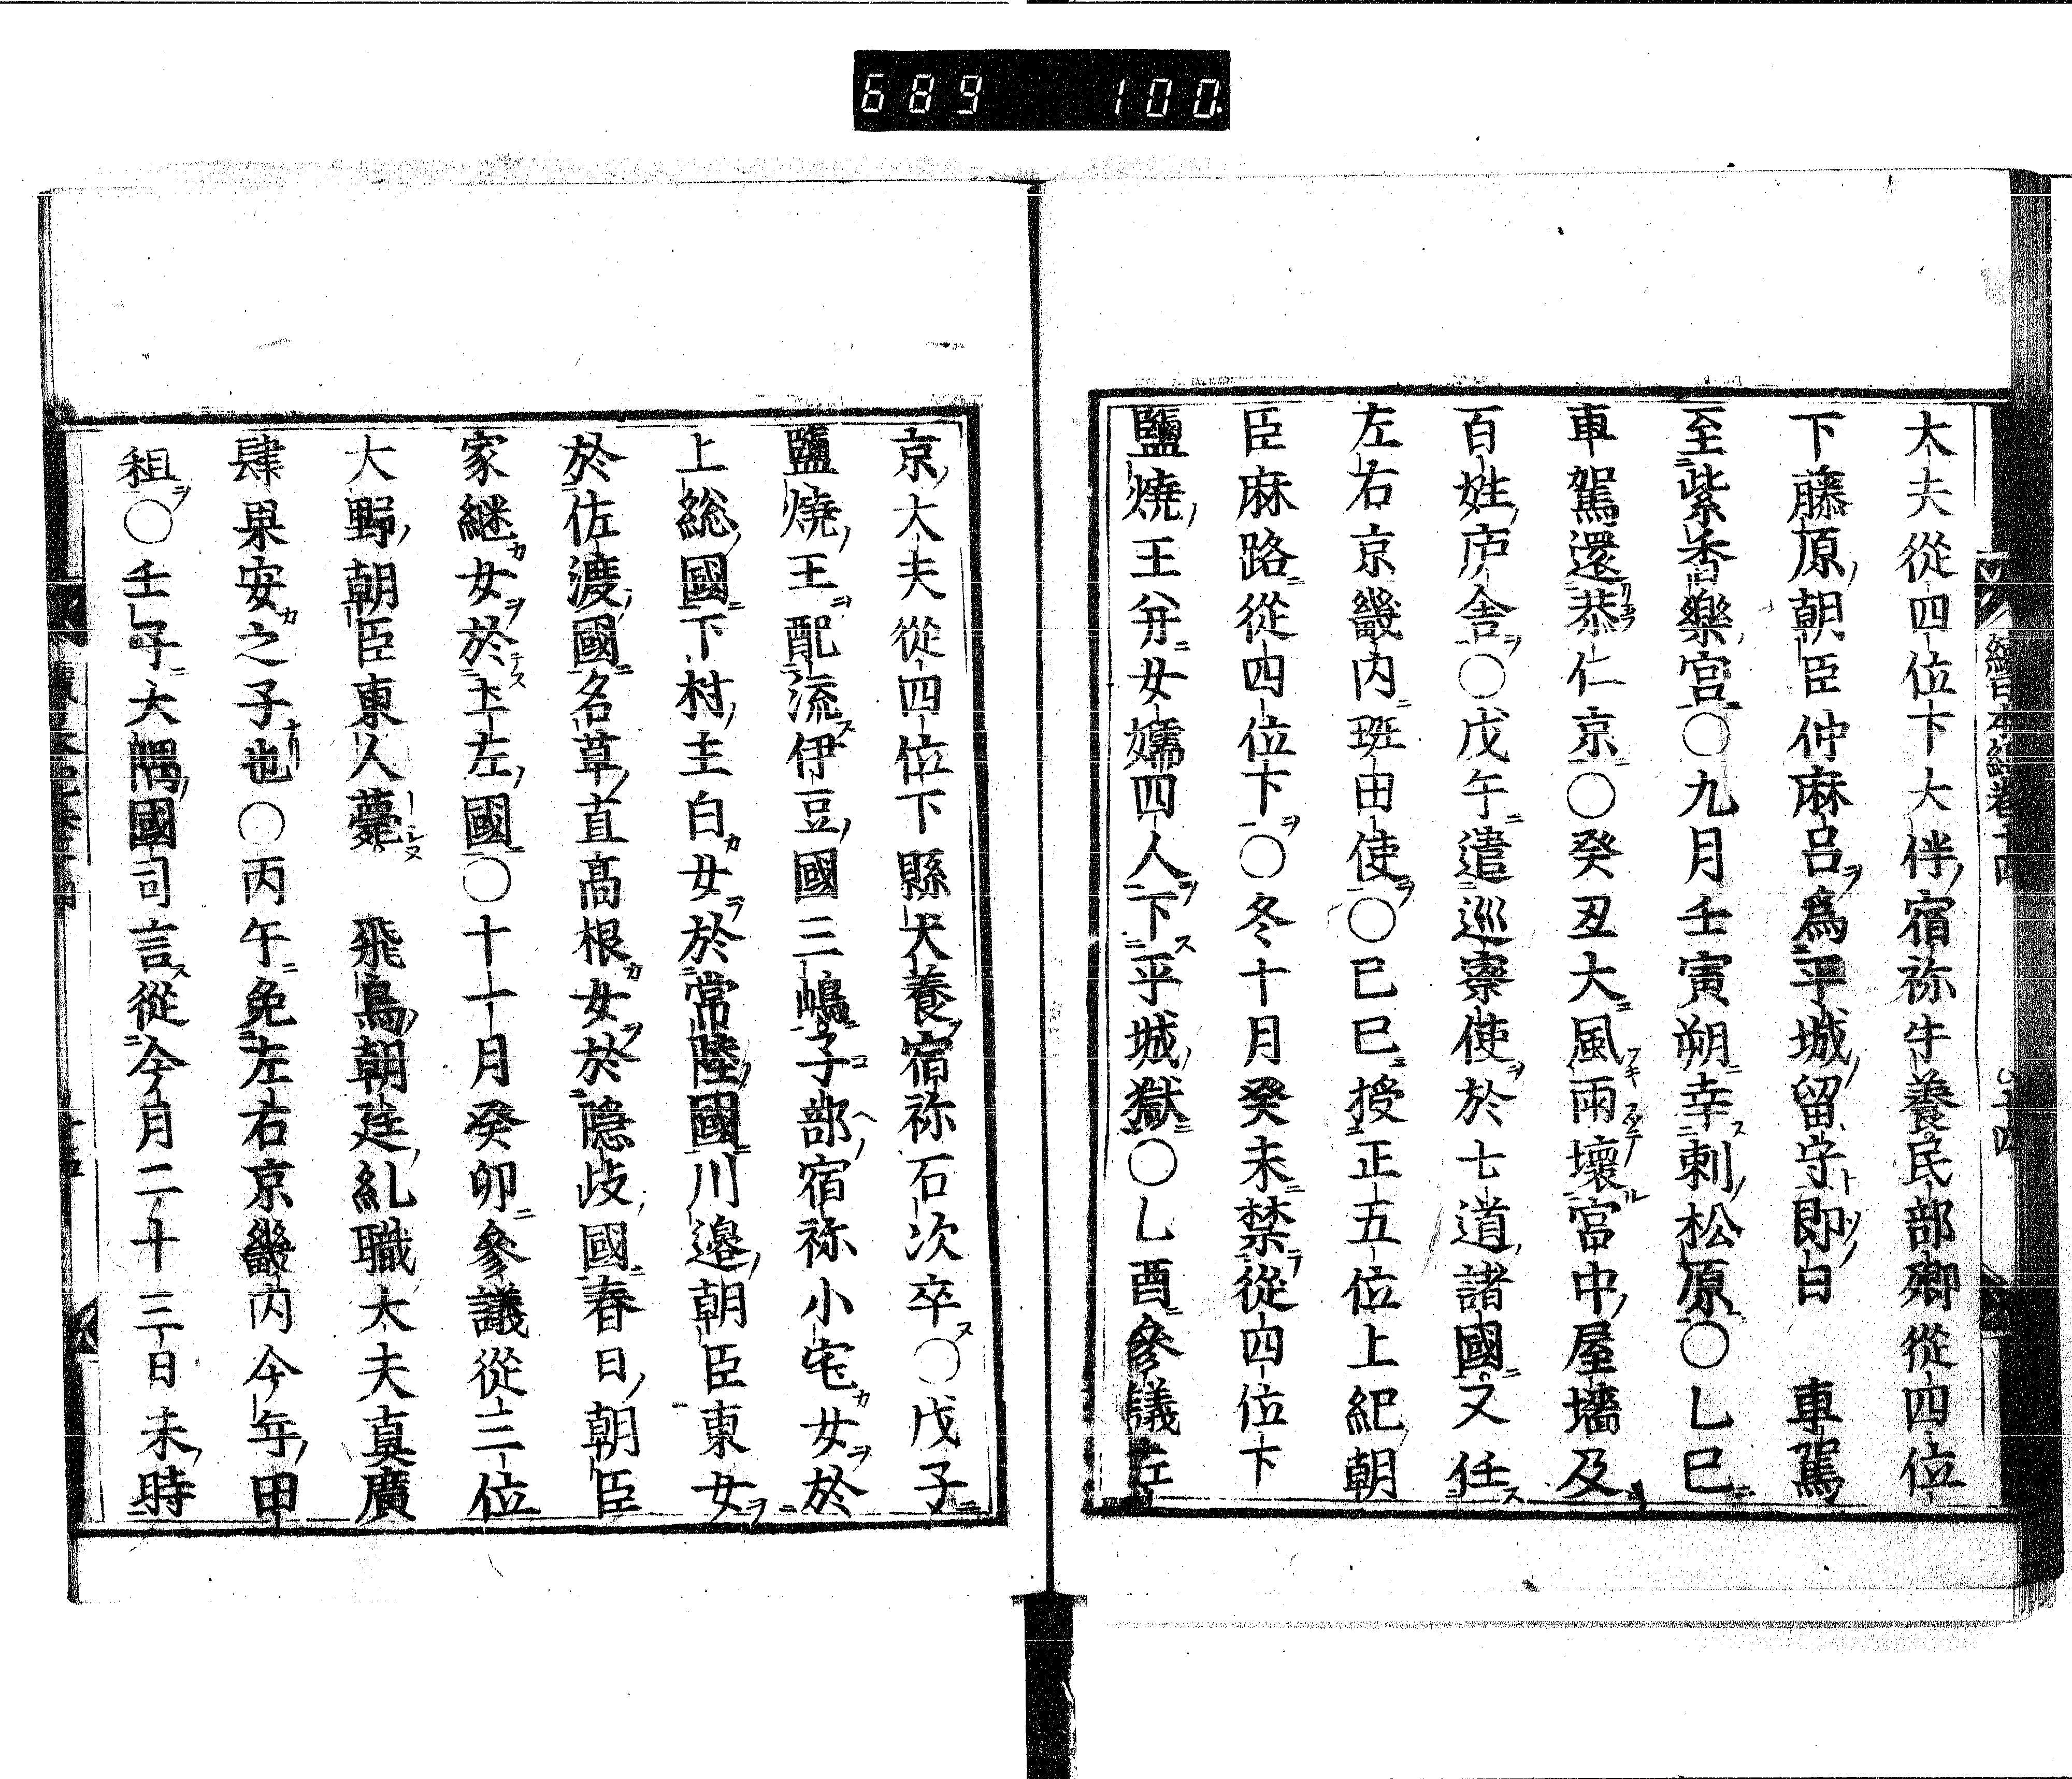 689 100
續日本紀卷十四
十四
大夫從四位下大伴宿祢牛養民部卿從四位
下藤原朝臣仲麻呂爲平城留守即日 車駕
至紫香樂宮〇九月壬寅朔幸刺松原〇乙巳
車駕還恭仁京〇癸丑大風雨壞宮中屋墻及
百姓庐舍〇戊午遣巡察使於七道諸國又任
左右京畿内班田使〇己巳授正五位上紀朝
臣麻路從四位下〇冬十月癸未禁從四位下
鹽燒王并女孺四人下平城獄〇乙酉參議左
京大夫從四位下縣犬養宿祢石次卒〇戊子
鹽燒王配流伊豆國三嶋子部宿祢小宅女於
上総國下村主白女於常陸國川邊朝臣東女
於佐渡國名草直髙根女於隠歧國春日朝臣
家継女於土左國〇十一月癸卯參議從三位
大野朝臣東人薨 飛鳥朝廷糺職大夫直廣
肆果安之子也〇丙午免左右京畿内今年甲
租〇壬子大隅國司言從今月二十三日未時